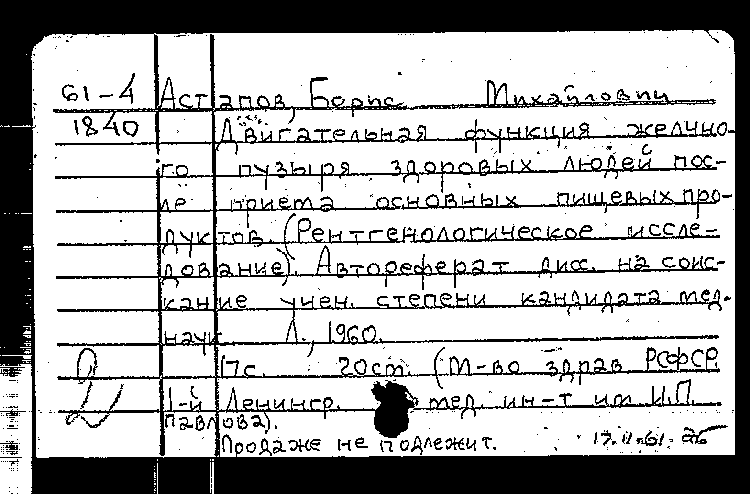 61-4 Астапов, Борис Михайлович
1840 Двигательная функция желчно-
го пузыря здоровых людей пос-
ле приема основных пищевых про-
дуктов. (Рентгенологическое иссле-
дование). Автореферат дисс. на соис-
кание учен. степени кандидата мед.
наук Л., 1960.
17с. 20см. (М-во здрав РСФСР.
2 1-й Ленингр. мед. ин-т им И.П.
Павлова).
Продаже не подлежит.